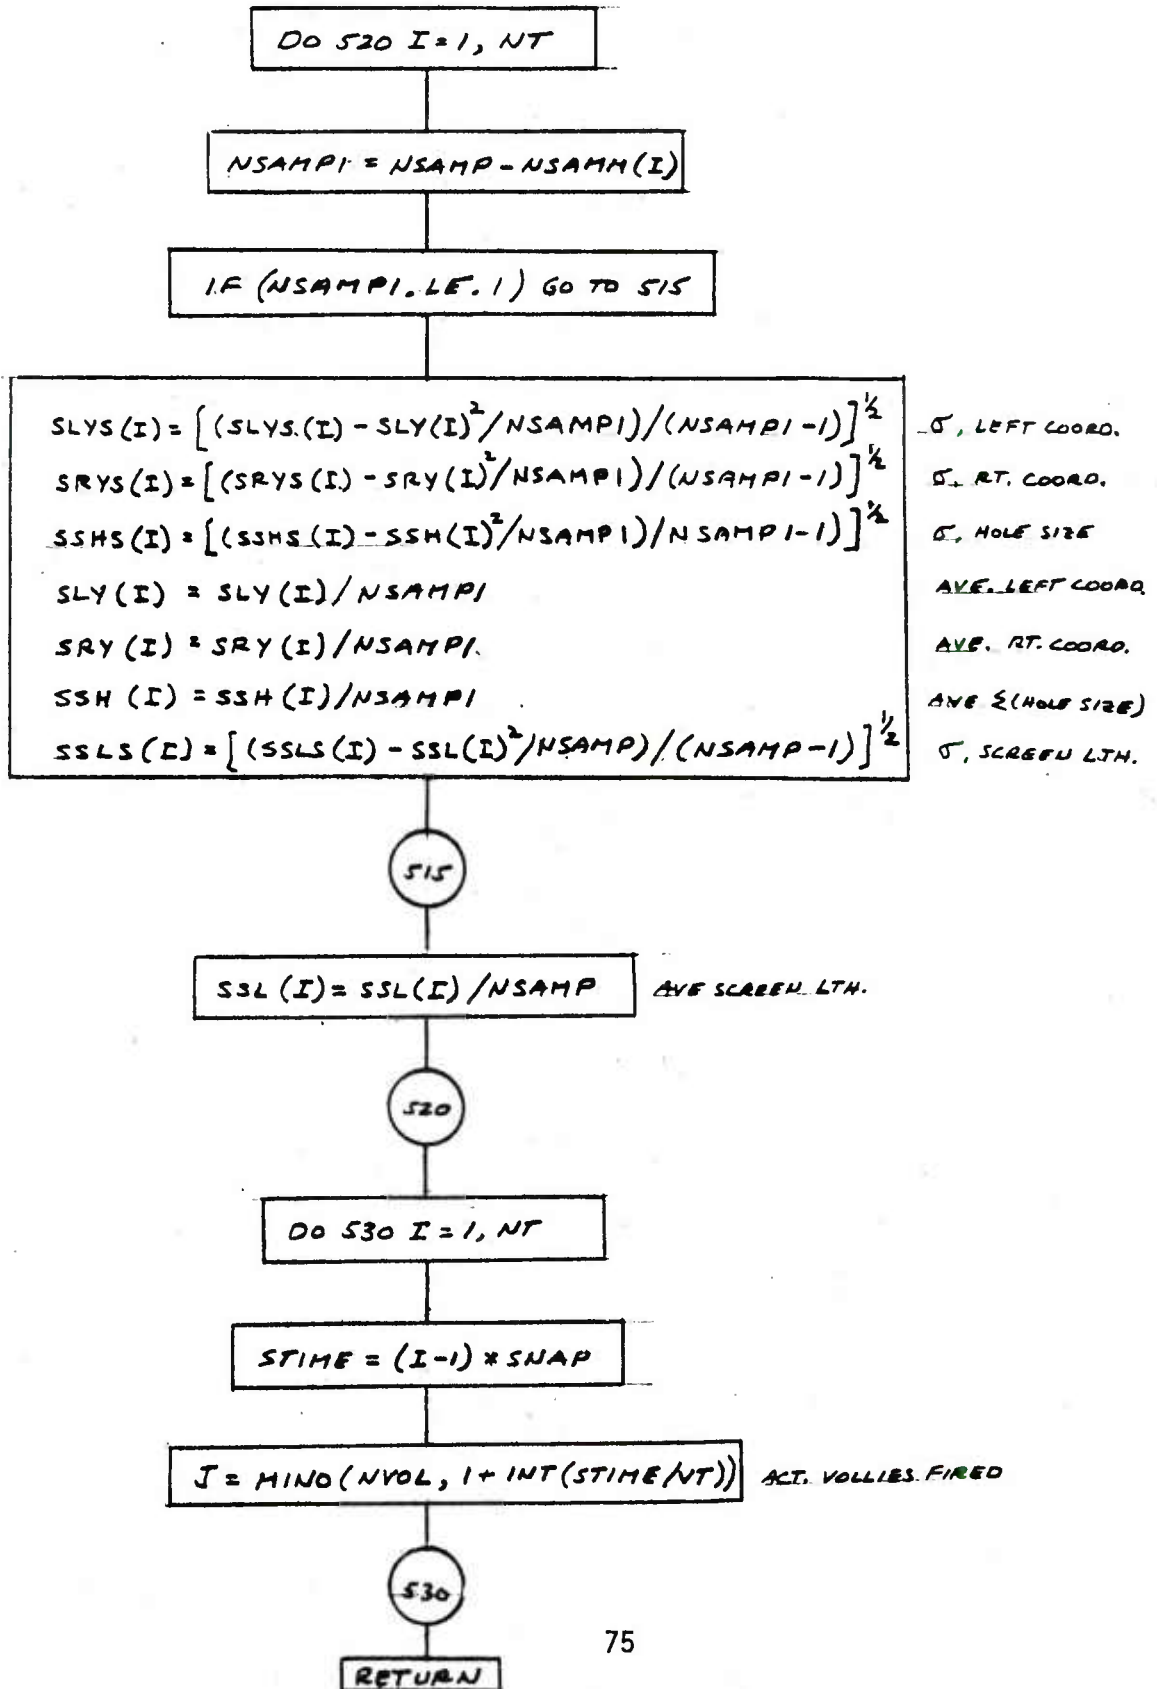 DO 520 I = 1, NT
NSAMP1 = NSAMP - NSAMM(I)
IF (NSAMP1.LE.1) GO TO 515
SLYS(I) = [(SLYS(I) - SLY(I)²/NSAMP1)/(NSAMP1-1)]^½ σ, LEFT COORD.
SRYS(I) = [(SRYS(I) - SRY(I)²/NSAMP1)/(NSAMP1-1)]^½ σ, RT. COORD.
SSHS(I) = [(SSHS(I) - SSH(I)²/NSAMP1)/NSAMP1-1)]^½ σ, HOLE SIZE
SLY(I) = SLY(I)/NSAMP1 AVE. LEFT COORD.
SRY(I) = SRY(I)/NSAMP1 AVE. RT. COORD.
SSH(I) = SSH(I)/NSAMP1 AVE Σ(HOLE SIZE)
SSLS(I) = [(SSLS(I) - SSL(I)²/NSAMP)/(NSAMP-1)]^½ σ, SCREEN LTH.
515
SSL(I) = SSL(I)/NSAMP AVE SCREEN LTH.
520
DO 530 I = 1, NT
STIME = (I-1) * SNAP
J = MINO(NVOL, 1 + INT(STIME/VT)) ACT. VOLLIES FIRED
530
75
RETURN